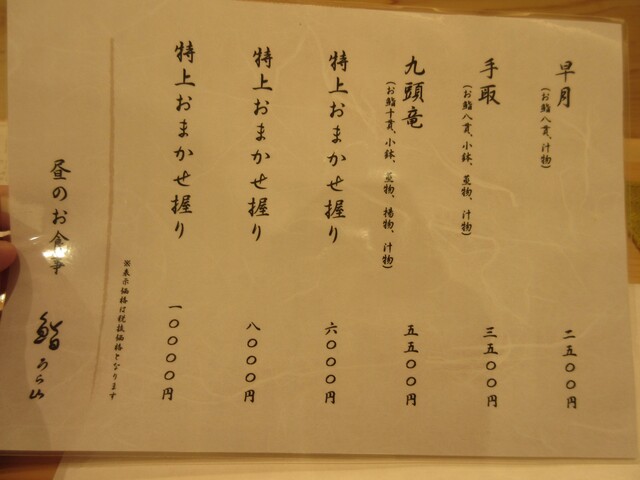 早月
(お鮨八貫、汁物)
二五〇〇円
手取
(お鮨八貫、小鉢、蒸物、汁物)
三五〇〇円
九頭竜
(お鮨十貫、小鉢、蒸物、揚物、汁物)
五五〇〇円
特上おまかせ握り
六〇〇〇円
特上おまかせ握り
八〇〇〇円
特上おまかせ握り
一〇〇〇〇円
※表示価格は税抜価格となります
昼のお食事
鮨 みつ山